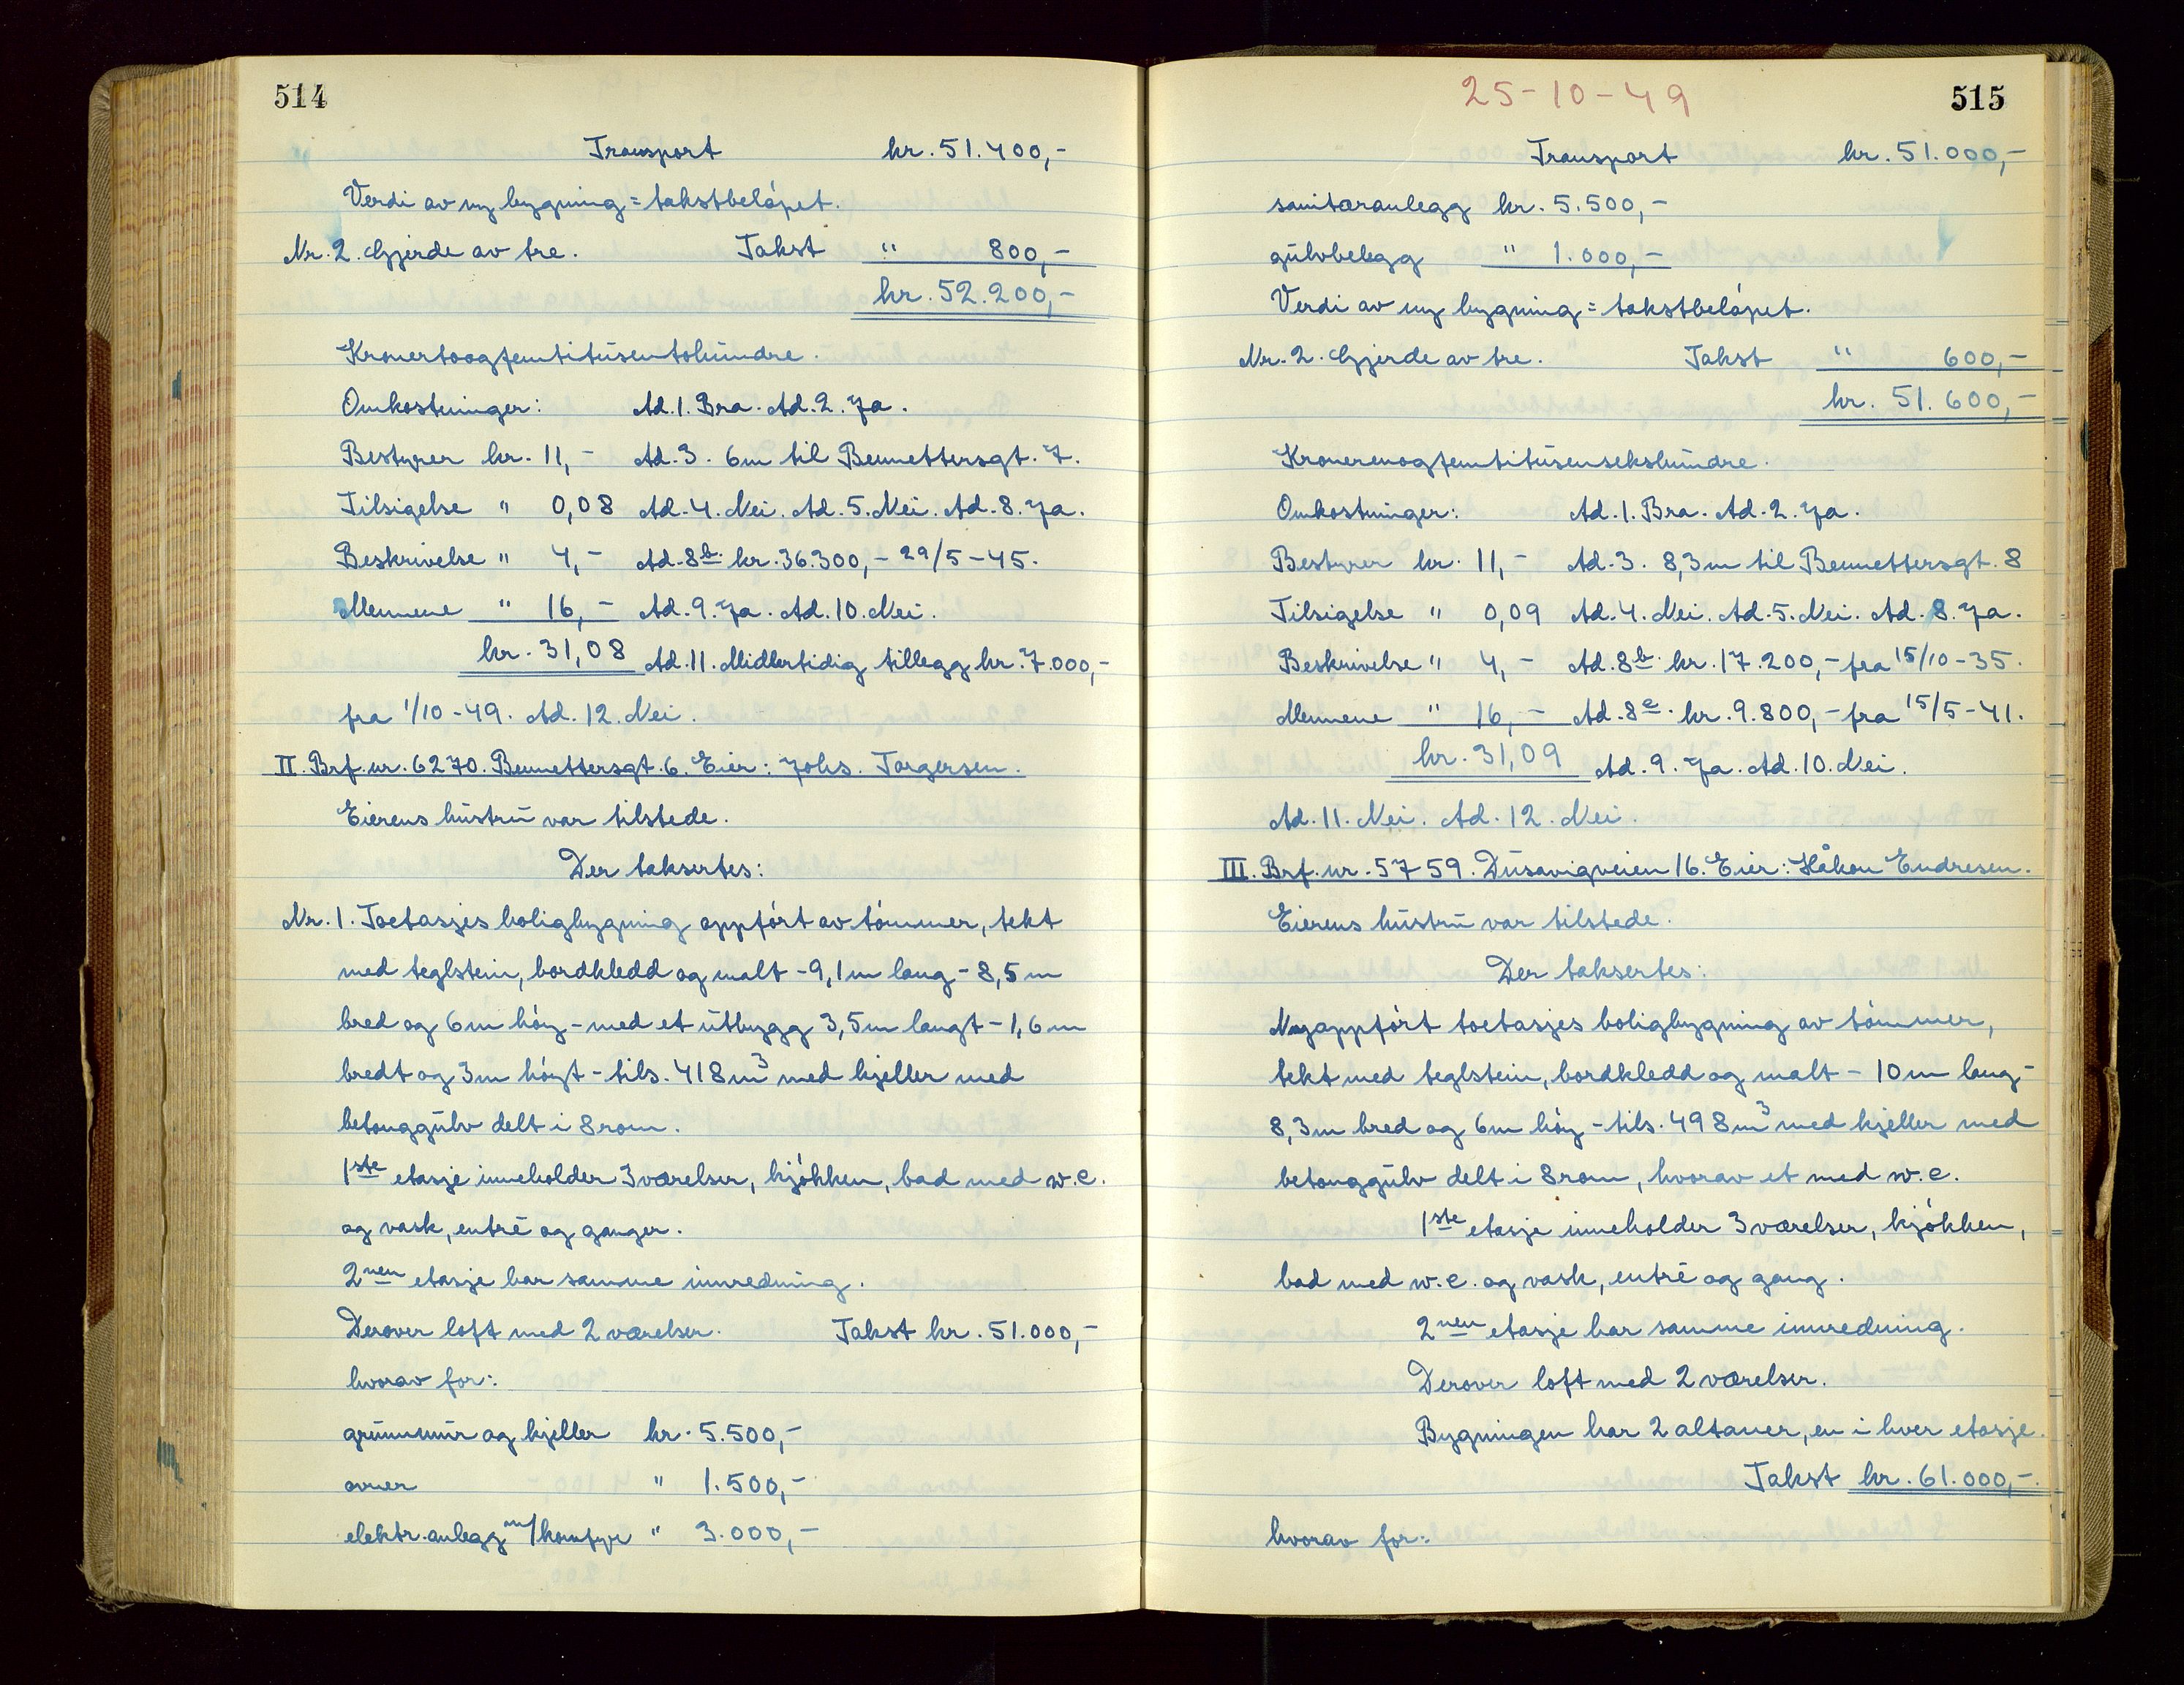 514
Transport kr. 51.400,-
Verdi av ny bygning = takstbeløpet.
Nr. 2. Gjerde av tre. Takst " 800,-
kr. 52.200,-
Kronertoogfemtitusentohundre.
Omkostninger: Ad. 1. Bra. Ad. 2. Ja.
Bestyrer kr. 11,- Ad. 3. 6m til Bennettersgt. 7.
Tilsigelse " 0,08 Ad. 4. Nei. Ad. 5. Nei. Ad. 8. Ja.
Beskrivelse " 4,- Ad. 8b. kr. 36.300,- 29/5-45.
Mennene " 16,- Ad. 9. Ja. Ad. 10. Nei.
kr. 31,08 Ad. 11. Midlertidig tillegg kr. 7.000,-
fra 1/10-49. Ad. 12. Nei.
II. Brf. nr. 6270. Bennettersgt. 6. Eier: Johs. Torgersen.
Eierens hustru var tilstede.
Der taksertes:
Nr. 1. Toetasjes boligbygning oppført av tømmer, tekt
med teglstein, bordkledd og malt - 9,1m lang - 8,5m
bred og 6m høy - med et utbygg 3,5m langt - 1,6m
bredt og 3m høyt - tils. 418m3 med kjeller med
betonggulv delt i 8 rom.
1ste etasje inneholder 3 værelser, kjøkken, bad med w.c.
og vask, entré og ganger.
2nen etasje har samme innredning.
Derover loft med 2 værelser. Takst kr. 51.000,-
hvorav for:
grunnmur og kjeller kr. 5.500,-
ovner " 1.500,-
elektr. anlegg m/komfyr " 3.000,-
25-10-49
515
Transport kr. 51.000,-
sanitæranlegg kr. 5.500,-
gulvbelegg " 1.000,-
Verdi av ny bygning = takstbeløpet.
Nr. 2. Gjerde av tre. Takst " 600,-
kr. 51.600,-
Kronerenogfemtitusensekshundre.
Omkostninger: Ad. 1. Bra. Ad. 2. Ja.
Bestyrer kr. 11,- Ad. 3. 8,3m til Bennettersgt. 8
Tilsigelse " 0,09 Ad. 4. Nei. Ad. 5. Nei. Ad. 8. Ja.
Beskrivelse " 4,- Ad. 8b. kr. 17.200,- fra 15/10-35.
Mennene " 16,- Ad. 8c. kr. 9.800,- fra 15/5-41.
kr. 31,09 Ad. 9. Ja. Ad. 10. Nei.
Ad. 11. Nei. Ad. 12. Nei.
III. Brf. nr. 5759. Dusavigveien 16. Eier: Håkon Endresen.
Eierens hustru var tilstede.
Der taksertes:
Nyoppført toetasjes boligbygning av tømmer,
tekt med teglstein, bordkledd og malt - 10m lang -
8,3m bred og 6m høy - tils. 498m3 med kjeller med
betonggulv delt i 8 rom, hvorav et med w.c.
1ste etasje inneholder 3 værelser, kjøkken,
bad med w.c. og vask, entré og gang.
2nen etasje har samme innredning.
Derover loft med 2 værelser.
Bygningen har 2 altaner, en i hver etasje.
Takst kr. 61.000,-
hvorav for: